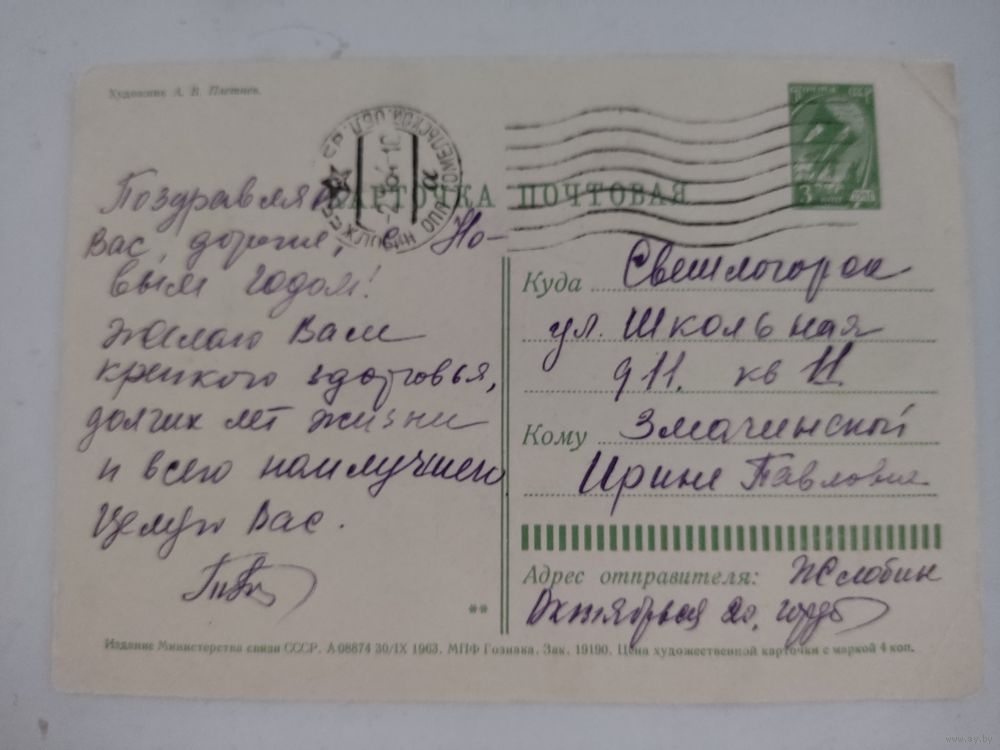 Художник А. В. Плетнев.
ПОЧТА СССР
3
КАРТОЧКА ПОЧТОВАЯ
Поздравляю
Вас, дорогие, с Но-
вым годом!
Желаю Вам
крепкого здоровья,
долгих лет жизни
и всего наилучшего.
Целую Вас.
Куда Светлогорск
ул. Школьная
д 11. кв 11.
Кому Змачинской
Ирине Павловне
Адрес отправителя: Жлобин
Октябрьская 20,
**
Издание Министерства связи СССР. А 08874 30/IX 1963. МПФ Гознака. Зак. 19190. Цена художественной карточки с маркой 4 коп.
www.ay.by